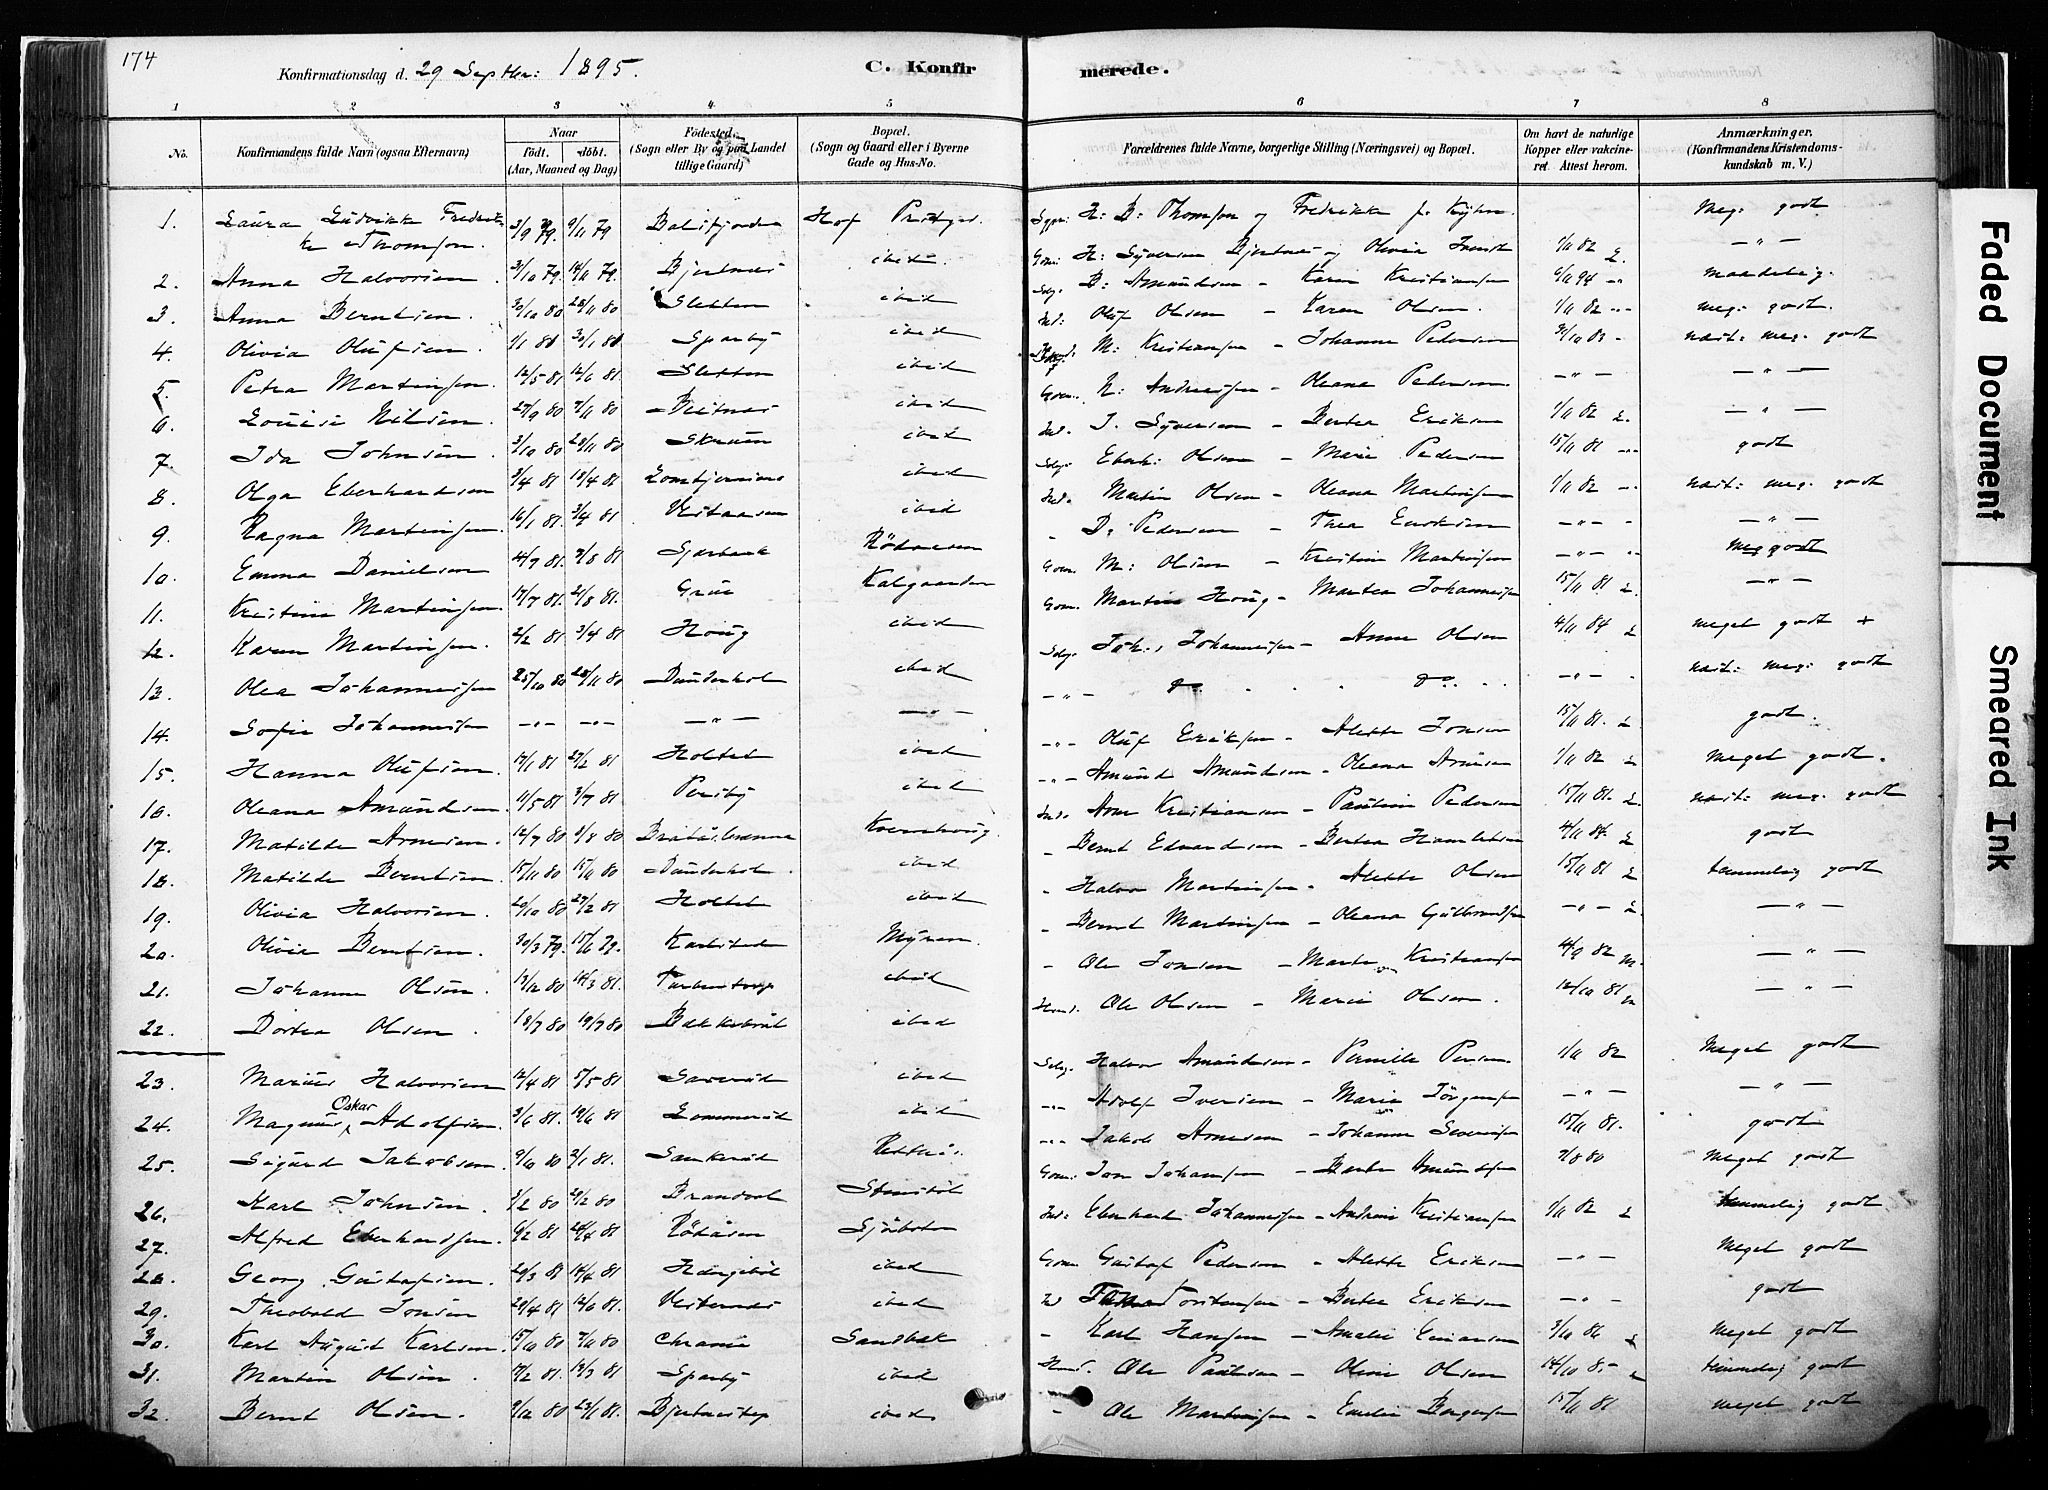 174
Konfirmationsdag d. 29 Septbr: 1895.
C. Konfirmerede.
1 2 3 4 5 6 7 8
No.
Konfirmandens fulde Navn (ogsaa Efternavn)
Naar
födt. döbt.
(Aar, Maaned og Dag)
Födested.
(Sogn eller By og paa Landet
tillige Gaard)
Bopæl.
(Sogn og Gaard eller i Byerne
Gade og Hus-No.
Forældrenes fulde Navne, borgerlige Stilling (Næringsvei) og Bopæl.
Om havt de naturlige
Kopper eller vakcine-
ret. Attest herom.
Anmærkninger.
(Konfirmandens Kristendoms-
kundskab m. V.)
1. Laura Ludvikke Fredrik-
ke Thomsen. 9/11 79 Hof Prstgd. H: B: Thomsen og Fredrikke meg: godt
2. Anna Halvorsen 3/10 79. 14/11 79. Bjertnes ibid H: Syversen Bjertnes og Olivia 1/11 82 — " —
3. Anna Berntsen. 30/10 80 28/11 80 Sletten ibid B: Amundsen – Karen Kristiansen 6/11 94 maadelig.
4. Olivia Olufsen. 1/1 81 30/1 81 Sparby ibid Oluf Olsen – Karen Olsen. 1/11 82 meg: godt.
5. Petra Martinsen. 12/5 81 12/6 81. Sletten ibid M: Kristiansen – Johanne Pedersen 31/10 83 næst: meg. godt
6. Louise Nilsen. 27/9 80 7/11 80 ibid N: Andreassen – Oleana Pedersen — " — — " —
7. Ida Johnsen. 3/10 80 28/11 80 ibid J. Syversen – Berthe Eriksen 1/11 82 — " —
8. Olga Eberhardsen 3/4 81 18/4 81 ibid Eberh: Olsen – Marie Pedersen 15/11 81 godt
9. Ragna Martinsen. 16/1 81. 3/4 81 Vestaasen ibid Martin Olsen – Oleana Martinsen 1/11 82 næst: meg. godt
10. Emma Danielsen 4/7 81. 7/8 81 Rödaasen D: Pedersen – Thea Eriksen — " — — " —
11. Kristine Martinsen. 17/7 81. 21/8 81. Grue Kalgaarden M: Olsen – Kristine Martinsen — " — meg godt
12. Karen Martinsen. 2/2 81 3/4 81 Houg ibid Martin Houg – Martea Johannessen 15/11 81 — " —
13. Olea Johannessen 25/10 80 28/11 80 Dunderhol ibid Joh., Johannessen – Anne Olsen 4/11 84 meget godt +
14. Sofie Johannessen — " — — " — — " — — " — — " — do. do. — " — næst: meg: godt
15. Hanna Olufsen. 17/1 81 27/2 81 Holtet ibid Oluf Eriksen – Alette Jonsen 15/11 81. godt.
16. Oleana Amundsen 11/5 81 3/7 81. Persby ibid Amund Amundsen – Oleana Arnesen 1/11 82 meget godt.
17. Matilde Arnesen. 12/7 80 8/8 80 Kornhoug. Arne Kristiansen – Pauline Pedersen 15/11 81. næst: meg. godt
18. Matilde Berntsen. 15/11 80 Dunderhol. ibid Bernt Edvardsen – Berthea 4/11 84. godt
19. Olivia Halvorsen. 20/10 80 27/2 81 Holtet ibid Halvor Martinsen – Alette Olsen 15/11 81 temmelig godt
20. Olivia Berntsen. 30/3 79. 15/6 79. Karlstad Myren Bernt Martinsen – Oleana Gulbrandsen — " — — " —
21. Johanne Olsen. 13/12 80 14/3 81. ibid Ole Jonsen – Marte Kristiansen 4/9 82 — " —
22. Dortea Olsen. 18/7 80 ibid Ole Olsen – Marie Olsen. 12/10 81 — " —
23. Marius Halvorsen 12/4 81 5/5 81 ibid Halvor Amundsen – Pernille Persen 1/11 82 Meget godt
24. Magnus Oskar Adolfsen. 3/6 81. 19/6 81 Lommerud ibid Adolf Iversen – Marie Jörgensen — " — — " —
25. Sigurd Jakobsen. 9/10 80 2/1 81. Jakob Arnesen – Johanne Severinsen 15/11 81. godt
26. Karl Johnsen. 5/2 80 29/2 80 Brandval Jon Johansen – Marthe Amundsen 7/8 80 Meget godt
27. Alfred Eberhardsen. 6/2 81 24/4 81 Rödåsen Sjöbotn Eberhard Johannessen – Andrine Kristiansen 1/11 82 temmelig godt
28. Georg Gustafsen. 20/3 81 14/4 81 ibid Gustaf Pedersen – Alette Eriksen — " — Meget godt
29. Theobald Jonsen 29/4 81 12/6 81. Vesternes ibid Torstensen – Berthe Eriksen — " — godt
30. Karl August Karlsen. 15/10 80 7/11 80 Chrania Sandbæk Karl Hansen – Amalie Einarsen Meget godt
31. Martin Olsen. 17/2 81 13/3 81 Sparby ibid Ole Paulsen – Oline Olsen temmelig godt
32. Bernt Olsen. 9/12 80 23/1 81. ibid Ole Martinsen – Emilie Borgersen 15/11 81 meget godt
Faded Document
Smeared Ink